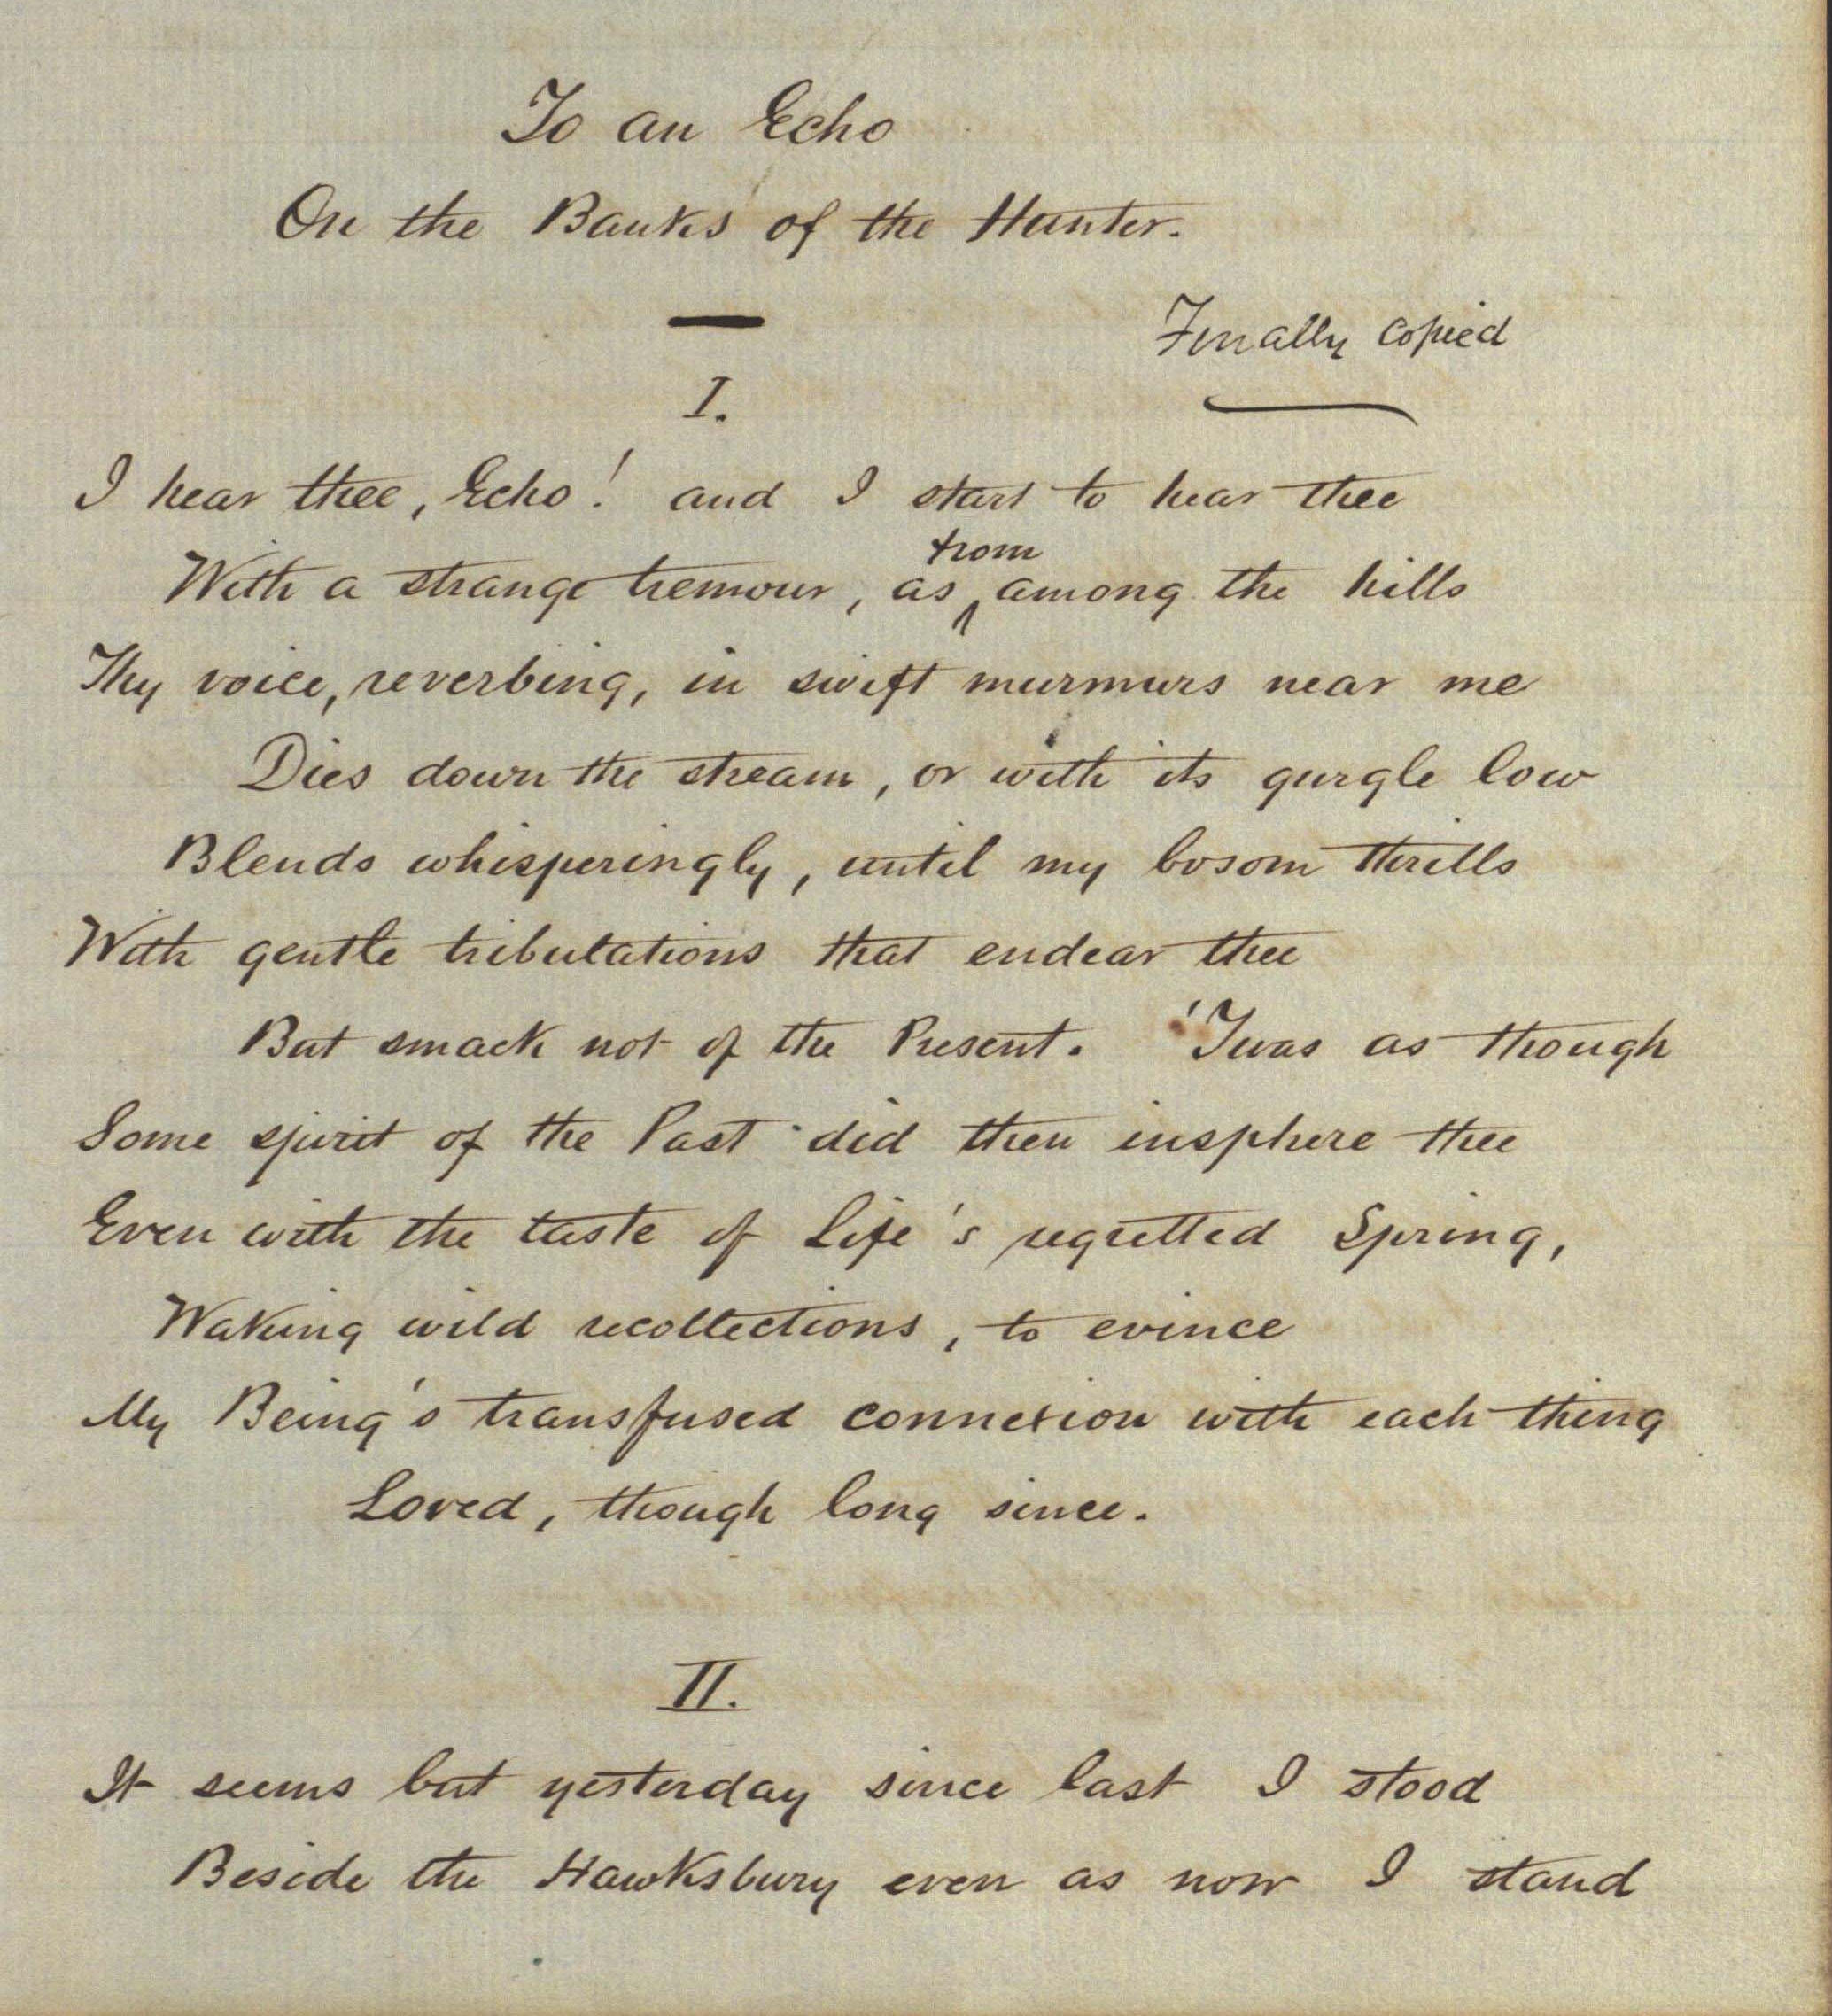 To an Echo
On the Banks of the Hunter.
Finally copied
I.
I hear thee, Echo! and I start to hear thee
from
With a strange tremour, as ^ among the hills
Thy voice, reverbing, in swift murmurs near me
Dies down the stream, or with its gurgle low
Blends whisperingly, until my bosom thrills
With gentle tribulations that endear thee
But smack not of the Present. 'Twas as though
Some spirit of the Past did then insphere thee
Even with the taste of Life's regretted Spring,
Waking wild recollections, to evince
My Being's transfused connexion with each thing
Loved, though long since.
II.
It seems but yesterday since last I stood
Beside the Hawksbury even as now I stand